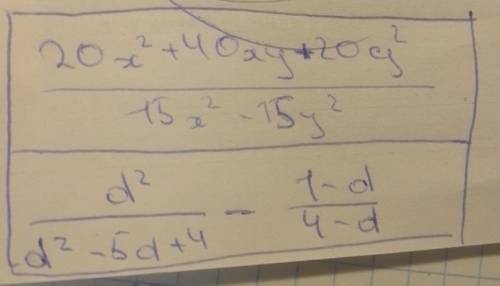 20x² + 40xy + 20y²
15x² - 15y²
d² / (d² - 5d + 4) - (1 - d) / (4 - d)